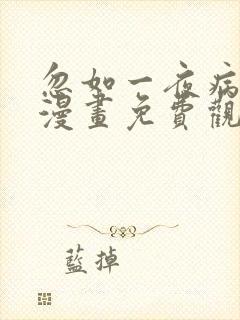 忽如一夜病
漫畫免費觀
藍掉